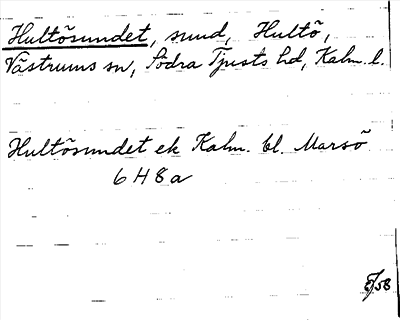 Hultösundet, sund, Hultö,
Västrums sn, Södra Tjusts hd, Kalm. l.
Hultösundet ek Kalm. bl. Marsö
6 H 8 a
5/58